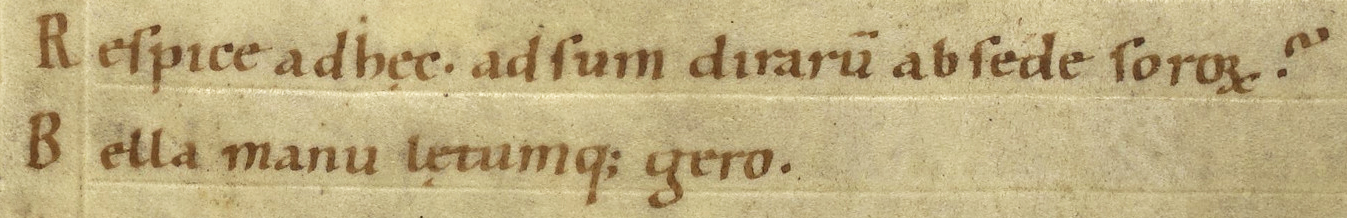 Respice ad hęc. adsum dirarū ab sede soroꝝ.
Bella manu lętumq; gero.